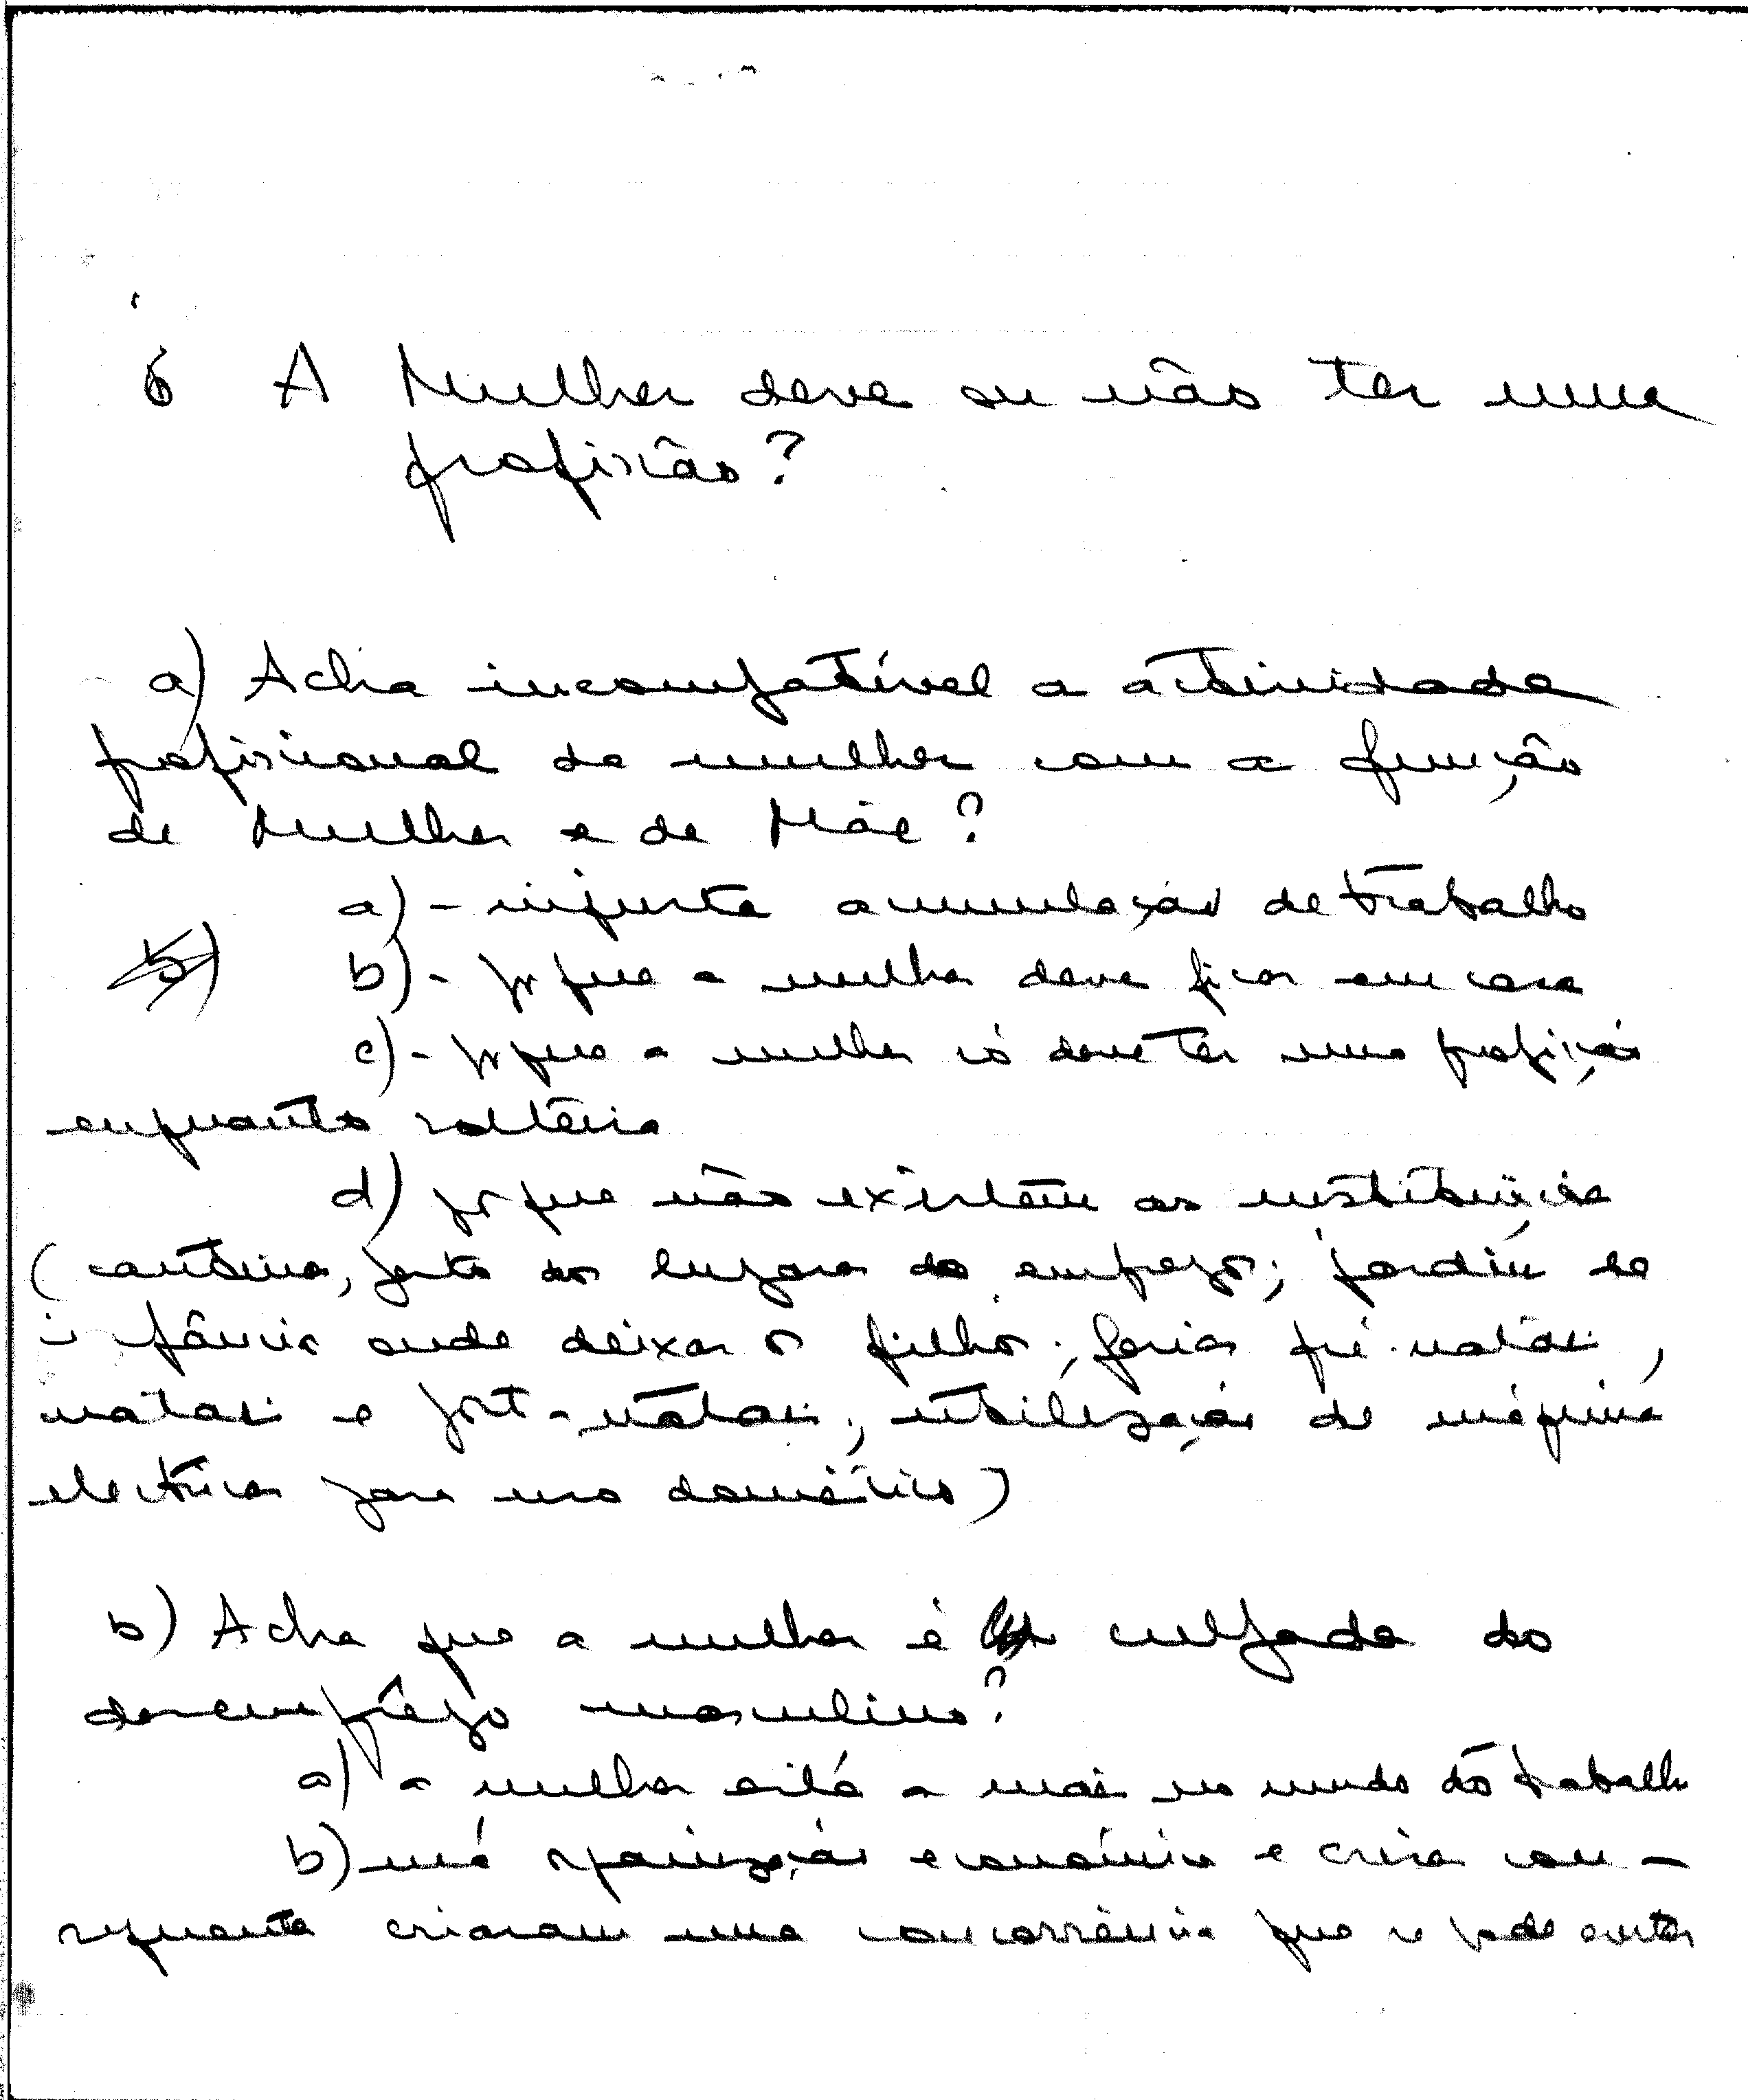 6 A Mulher deve ou não ter uma
profissão?
a) Acha incompatível a actividade
profissional da mulher com a função
de Mulher e de Mãe?
a) - injusta acumulação de trabalho
b) - porque a mulher deve ficar em casa
c) - porque a mulher só deve ter uma profissão
enquanto solteira
d) porque não existem as instituições
(cantinas, perto dos lugares de emprego; jardins de
infância onde deixar os filhos; ferias pré-natais,
natais e post-natais; utilização de máquinas
electricas para uso doméstico)
b) Acha que a mulher é culpada do
desemprêgo masculino?
a) a mulher está a mais no mundo do trabalho
b) má organização económica e crise con-
sequente criaram uma concorrência que se pode evitar